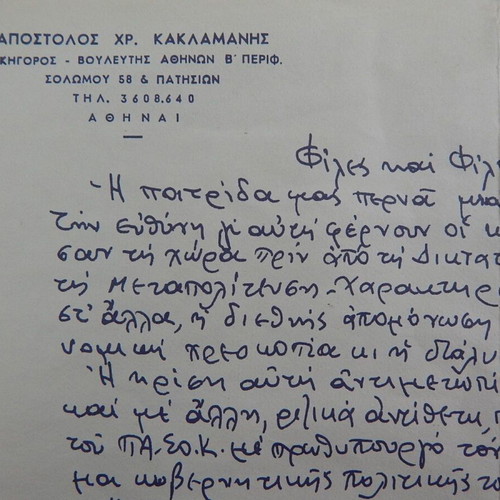 ΑΠΟΣΤΟΛΟΣ ΧΡ. ΚΑΚΛΑΜΑΝΗΣ
ΚΗΓΟΡΟΣ - ΒΟΥΛΕΥΤΗΣ ΑΘΗΝΩΝ Β΄ ΠΕΡΙΦ.
ΣΟΛΩΜΟΥ 58 & ΠΑΤΗΣΙΩΝ
ΤΗΛ. 3608.640
ΑΘΗΝΑΙ
Φίλες καί Φίλ
Ἡ πατρίδα μας περνᾶ μια
τήν εὐθύνη γι' αὐτή φέρνουν οἱ κ
σαν τή χώρα πρίν ἀπό τή Δικτατ
τή Μεταπολίτευση. Χαρακτηρ
στ' ἄλλα, ἡ διεθνής ἀπομόνωση
νομική χρεοκοπία κι ἡ διάλυ
Ἡ κρίση αὐτή ἀντιμετωπί
καί μέ ἄλλη, ριζικά ἀντίθετη,
τοῦ ΠΑ.ΣΟ.Κ. μέ πρωθυπουργό τόν
μια κυβερνητικῆς πολιτικῆς